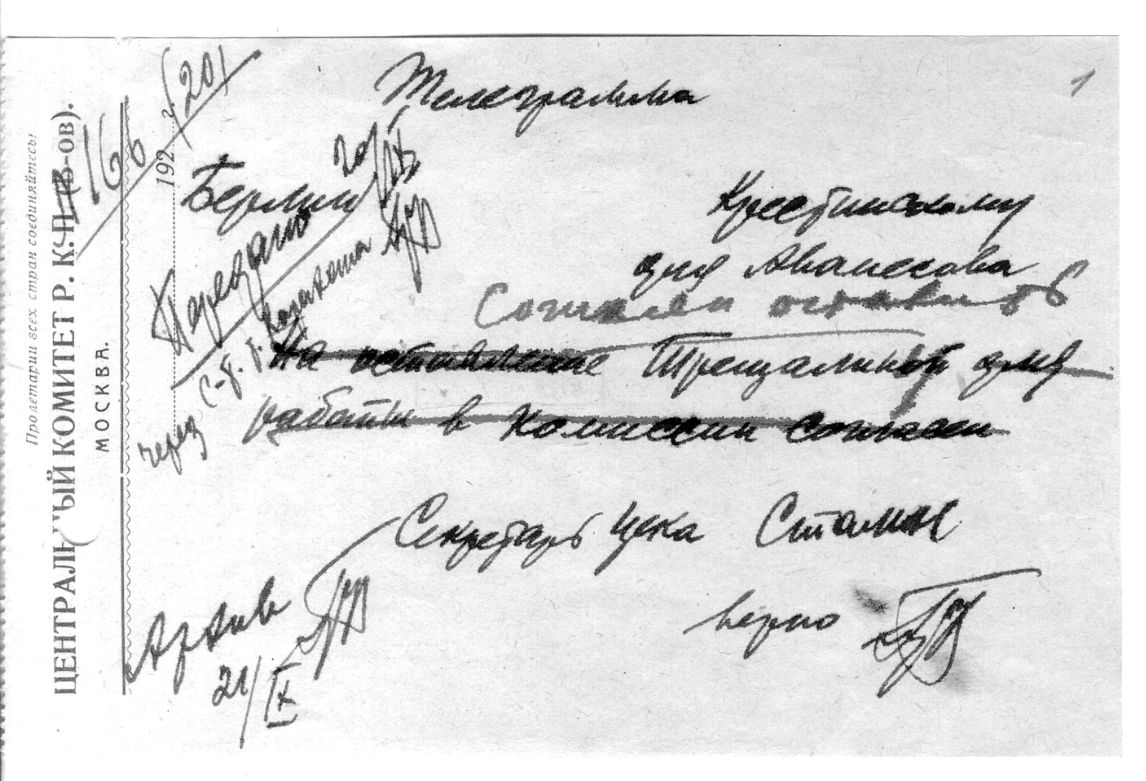 Пролетарии всех стран соединяйтесь!
ЦЕНТРАЛЬНЫЙ КОМИТЕТ Р. К. П. (Б-ов).
МОСКВА.
192 г.
1
Телеграмма
Берлин
Крестинскому
для Аванесова
Согласен оставить
На оставление Трещалиной для
работы в Комиссии согласен
Секретарь Цека Сталин
верно
Передано
20/IX
через
Архив
21/IX